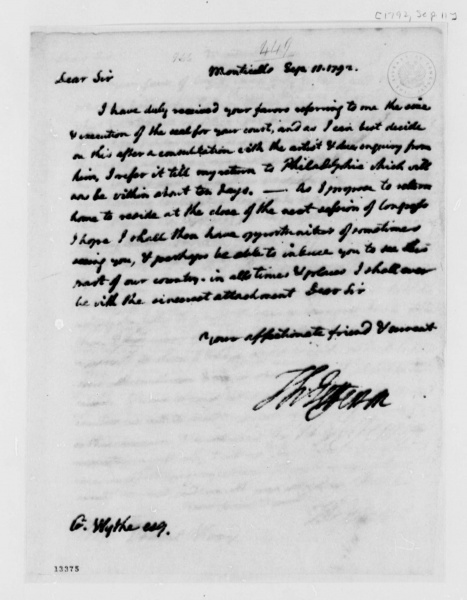 [1792, Sep 11]
449
Monticello Sep. 11. 1792.
Dear Sir
I have duly received your favors referring to me the size
& execution of the seal for your court, and as I can best decide
on this after a consultation with the artist & due enquiry from
him, I refer it till my return to Philadelphia which will
now be within about ten days. — As I propose to return
home to reside at the close of the next session of Congress
I hope I shall then have opportunities of sometimes
seeing you, & perhaps be able to induce you to see this
part of our country. in all times & places I shall ever
be with the sincerest attachment Dear Sir
Your affectionate friend & servant
Th: Jefferson
G. Wythe esq.
13375